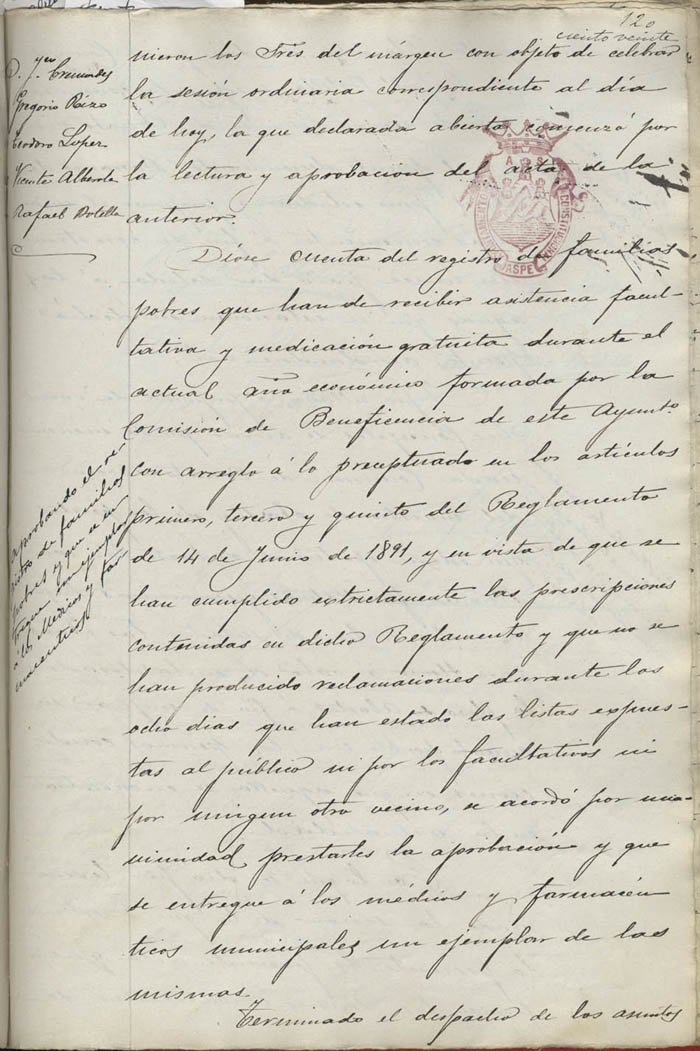 120
ciento veinte
Gregorio
Teodoro Lopez
Vicente Alberda
Rafael Botella
nieron los Sres del márgen con objeto de celebrar
la sesión ordinaria correspondiente al día
de hoy, la que declarada abierta comenzó por
la lectura y aprobación del acta de la
anterior.
Dióse cuenta del registro de familias
pobres que han de recibir asistencia facul-
tativa y medicación gratuita durante el
actual año económico formada por la
Comisión de Beneficencia de este Ayuntº
con arreglo á lo preceptuado en los artículos
primero, tercero y quinto del Reglamento
de 14 de Junio de 1891, y en vista de que se
han cumplido extrictamente las prescripciones
contenidas en dicho Reglamento y que no se
han producido reclamaciones durante los
ocho dias que han estado las listas expues-
tas al público ni por los facultativos ni
por ningun otro vecino, se acordó por una-
nimidad prestarles la aprobación y que
se entregue á los médicos y farmacéu
ticos municipales un ejemplar de las
mismas.
Terminado el despacho de los asuntos
Aprobando el re
gistro de familias
pobres y que se en
tregue un ejemplar
á los Médicos y far
macéuticos
CONSTITUCIONAL
JASPE